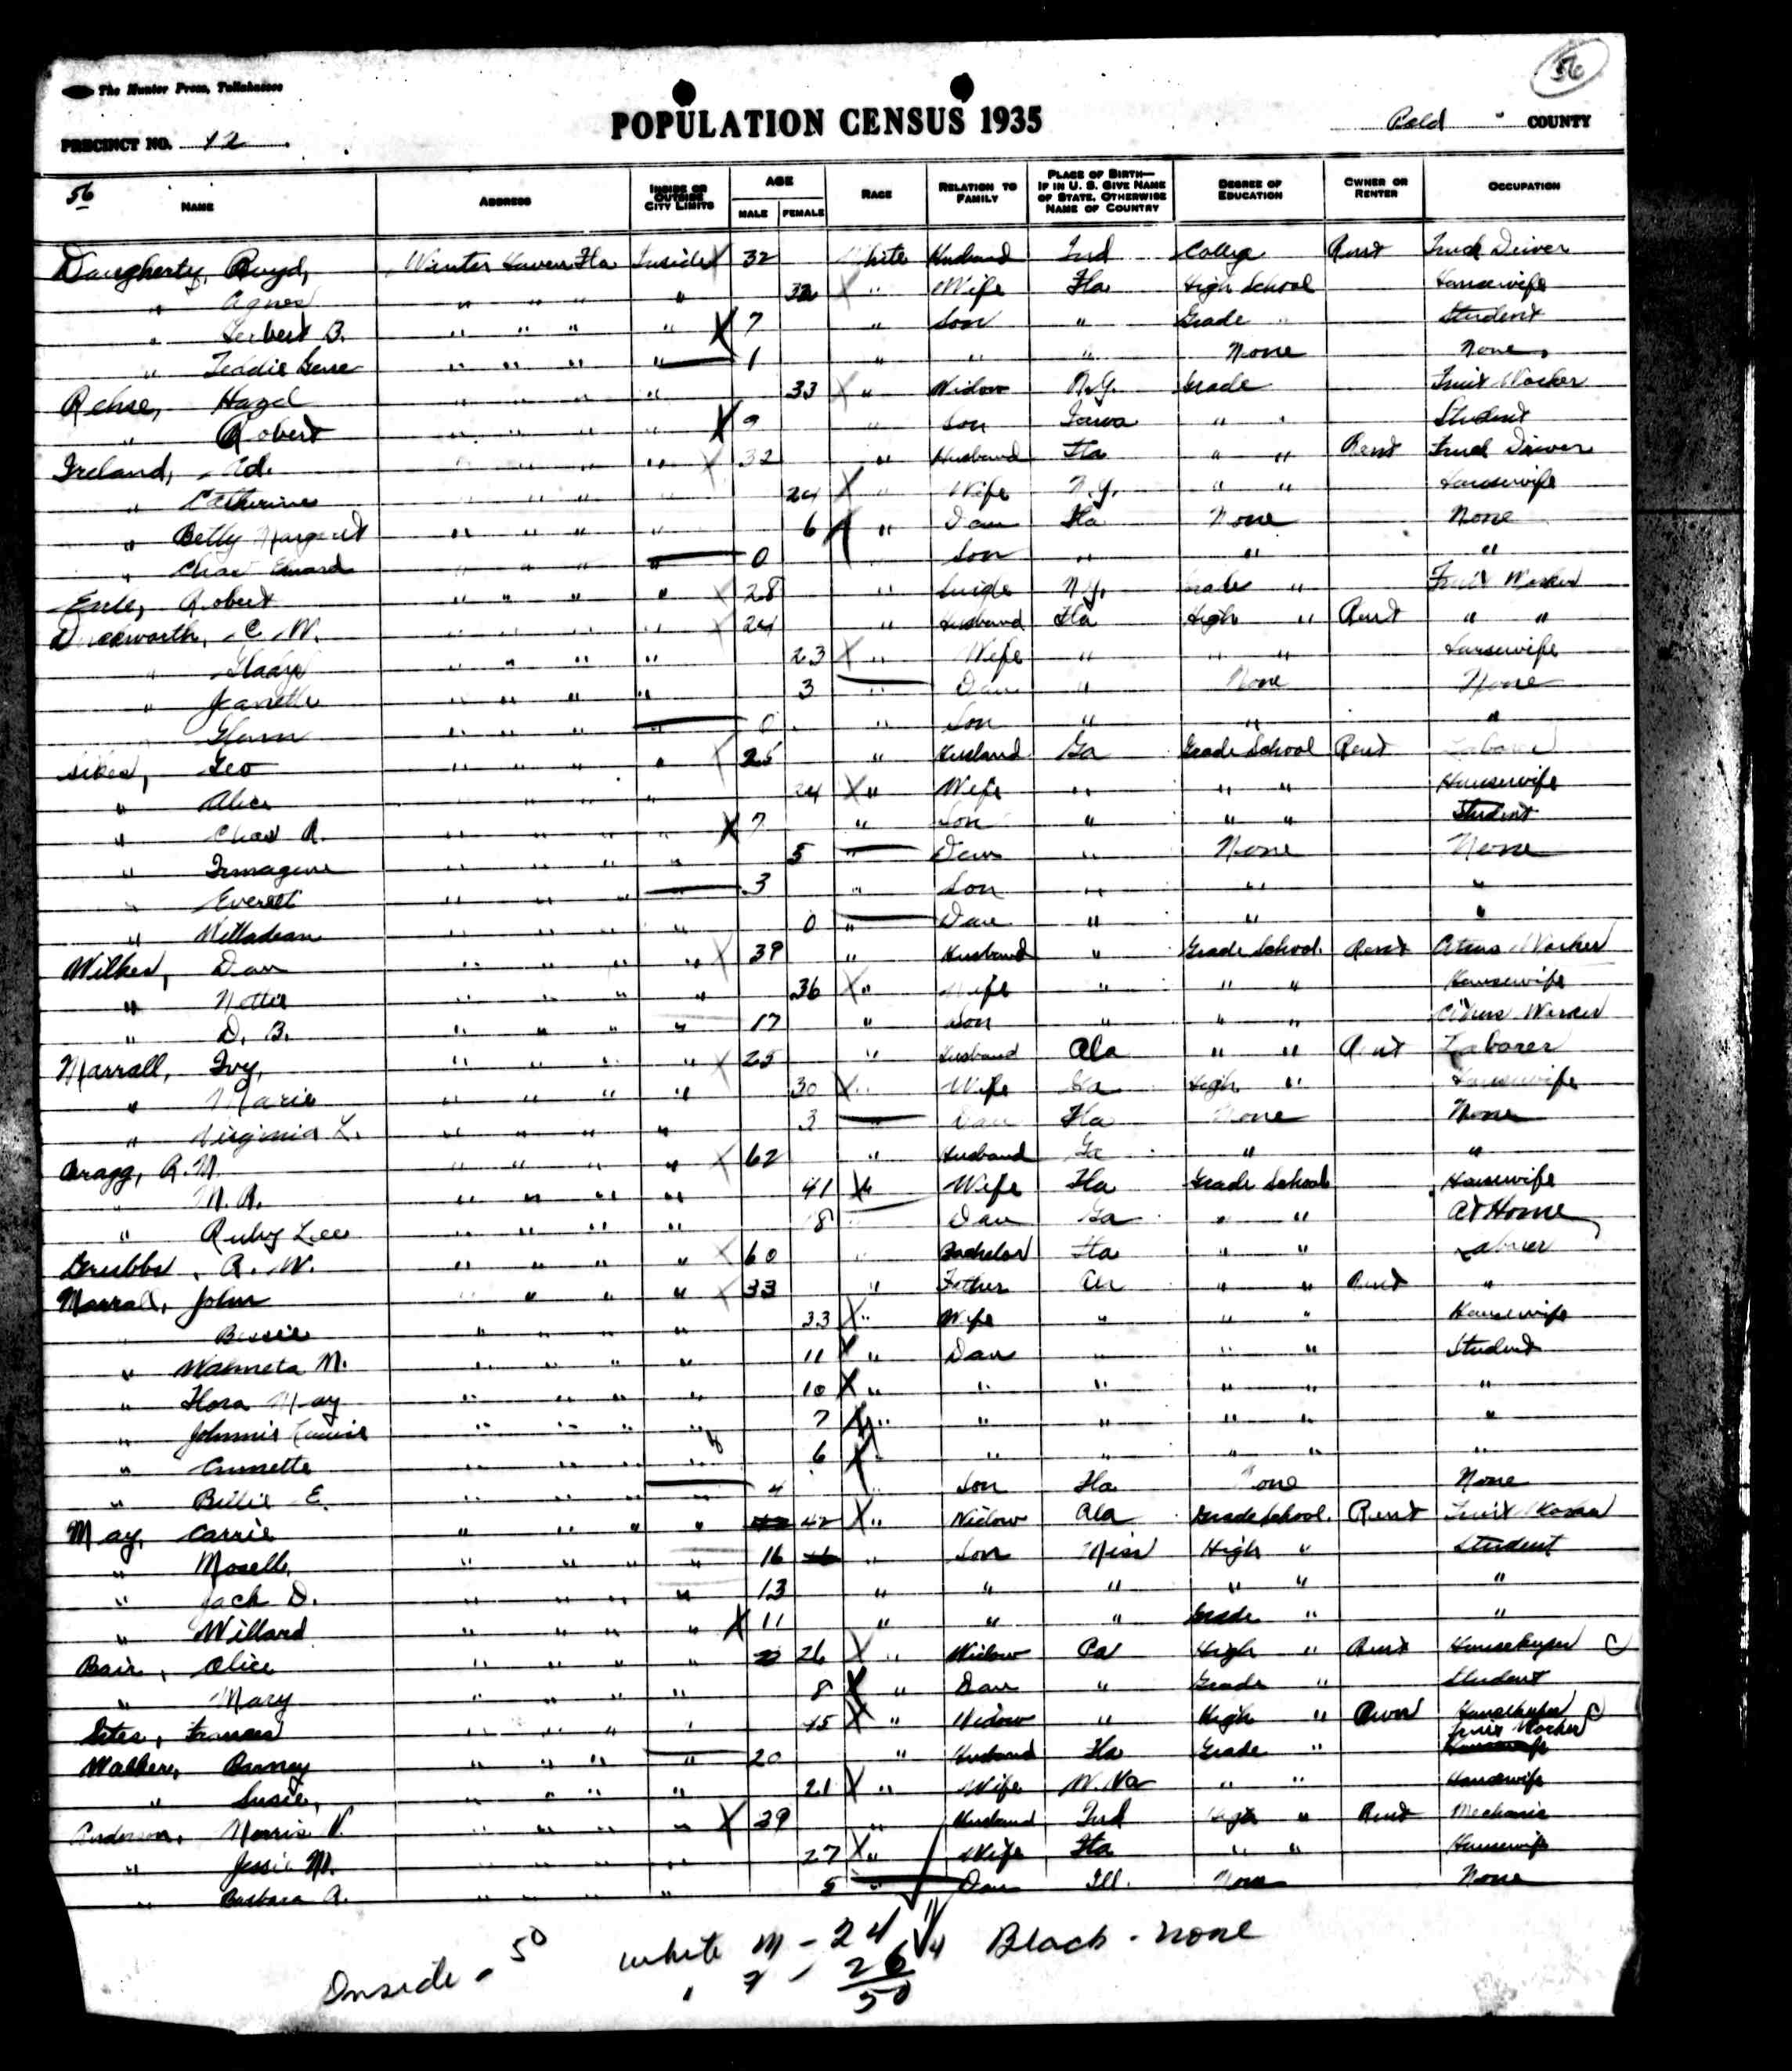 56
The Hunter Press, Tallahassee
POPULATION CENSUS 1935
PRECINCT NO. 12 COUNTY
56 NAME ADDRESS INSIDE OR OUTSIDE CITY LIMITS AGE MALE FEMALE RACE RELATION TO FAMILY PLACE OF BIRTH— IF IN U. S. GIVE NAME OF STATE, OTHERWISE NAME OF COUNTRY DEGREE OF EDUCATION OWNER OR RENTER OCCUPATION
Daugherty, Winter Haven Fla Inside X 32 White Husband Ind College Rent Truck Driver
" Agnes " " " " 32 X " Wife Fla High School Housewife
" Herbert B. " " " " X 7 " Son " Grade " Student
" Teddie Gene " " " " 1 " " " None None
Rehse, Hazel " " " " 33 X " Widow N.Y. Grade Fruit Worker
" Robert " " " " X 9 " Son Iowa " " Student
Ireland, Ed. " " " " X 32 " Husband Fla " " Rent Truck Driver
" Catherine " " " " 24 X " Wife N.Y. " " Housewife
" Betty Margaret " " " " 6 X " Dau Fla None None
" Chas Edward " " " " 0 " Son " " "
Robert " " " " X 28 " Single N.Y. Grade " Fruit Worker
Duckworth, C. W. " " " " X 24 " Husband Fla High " Rent " "
" Gladys " " " " 23 X " Wife " " " Housewife
" Janette " " " " 3 " Dau " None None
" Glenn " " " " 0 " Son " " "
Sikes, Geo " " " " X 25 " Husband Ga Grade School Rent Laborer
" Alice " " " " 24 X " Wife " " " Housewife
" Chas R. " " " " X 7 " Son " " " Student
" Irmagene " " " " 5 " Dau " None None
" Everett " " " " 3 " Son " " "
" Willadean " " " " 0 " Dau " " "
Wilkes, Dan " " " " X 39 " Husband " Grade School Rent Citrus Worker
" Nettie " " " " 36 X " Wife " " " Housewife
" D. B. " " " " 17 " Son " " " Citrus Worker
Marrall, Ivy, " " " " X 25 " Husband Ala " " Rent Laborer
" Marie " " " " 30 X " Wife Ga High " Housewife
" Virginia L. " " " " 3 " Dau Fla None None
Bragg, R. M. " " " " X 62 " Husband Ga " "
" M. A. " " " " 41 X " Wife Fla Grade School Housewife
" Ruby Lee " " " " 18 " Dau Ga " " At Home
Grubbs, R. W. " " " " X 60 " Bachelor Fla " " Laborer
Marrall, John " " " " X 33 " Father " " Rent "
" Bessie " " " " 33 X " Wife " " " Housewife
" M. " " " " 11 X " Dau " " " Student
" Flora May " " " " 10 X " " " " " "
" Johnnie Louise " " " " 7 X " " " " " "
" " " " " 6 X " " " " " "
" Billie E. " " " " 4 " Son Fla None None
May, Carrie " " " " 42 X " Widow Ala Grade School Rent Fruit Worker
" Moselle " " " " 16 " Son Miss High " Student
" Jack D. " " " " 13 " " " " " "
" Willard " " " " X 11 " " " Grade " "
Bair, Alice " " " " 26 X " Widow Pa High " Rent Housekeeper
" Mary " " " " 8 X " Dau " Grade " Student
Frances " " " " 45 X " Widow " High " Housekeeper
Walker, Barney " " " " 20 " Husband Fla Grade " Fruit Worker
" Susie, " " " " 21 X " Wife W. Va " " Housewife
Anderson, Norris V. " " " " X 39 " Husband Ind High " Rent Mechanic
" Jessie M. " " " " 27 X " Wife Fla " " Housewife
" Barbara A. " " " " 5 " Dau Ill. None None
Inside - 50 White M - 24 Black - None
" F - 26
50